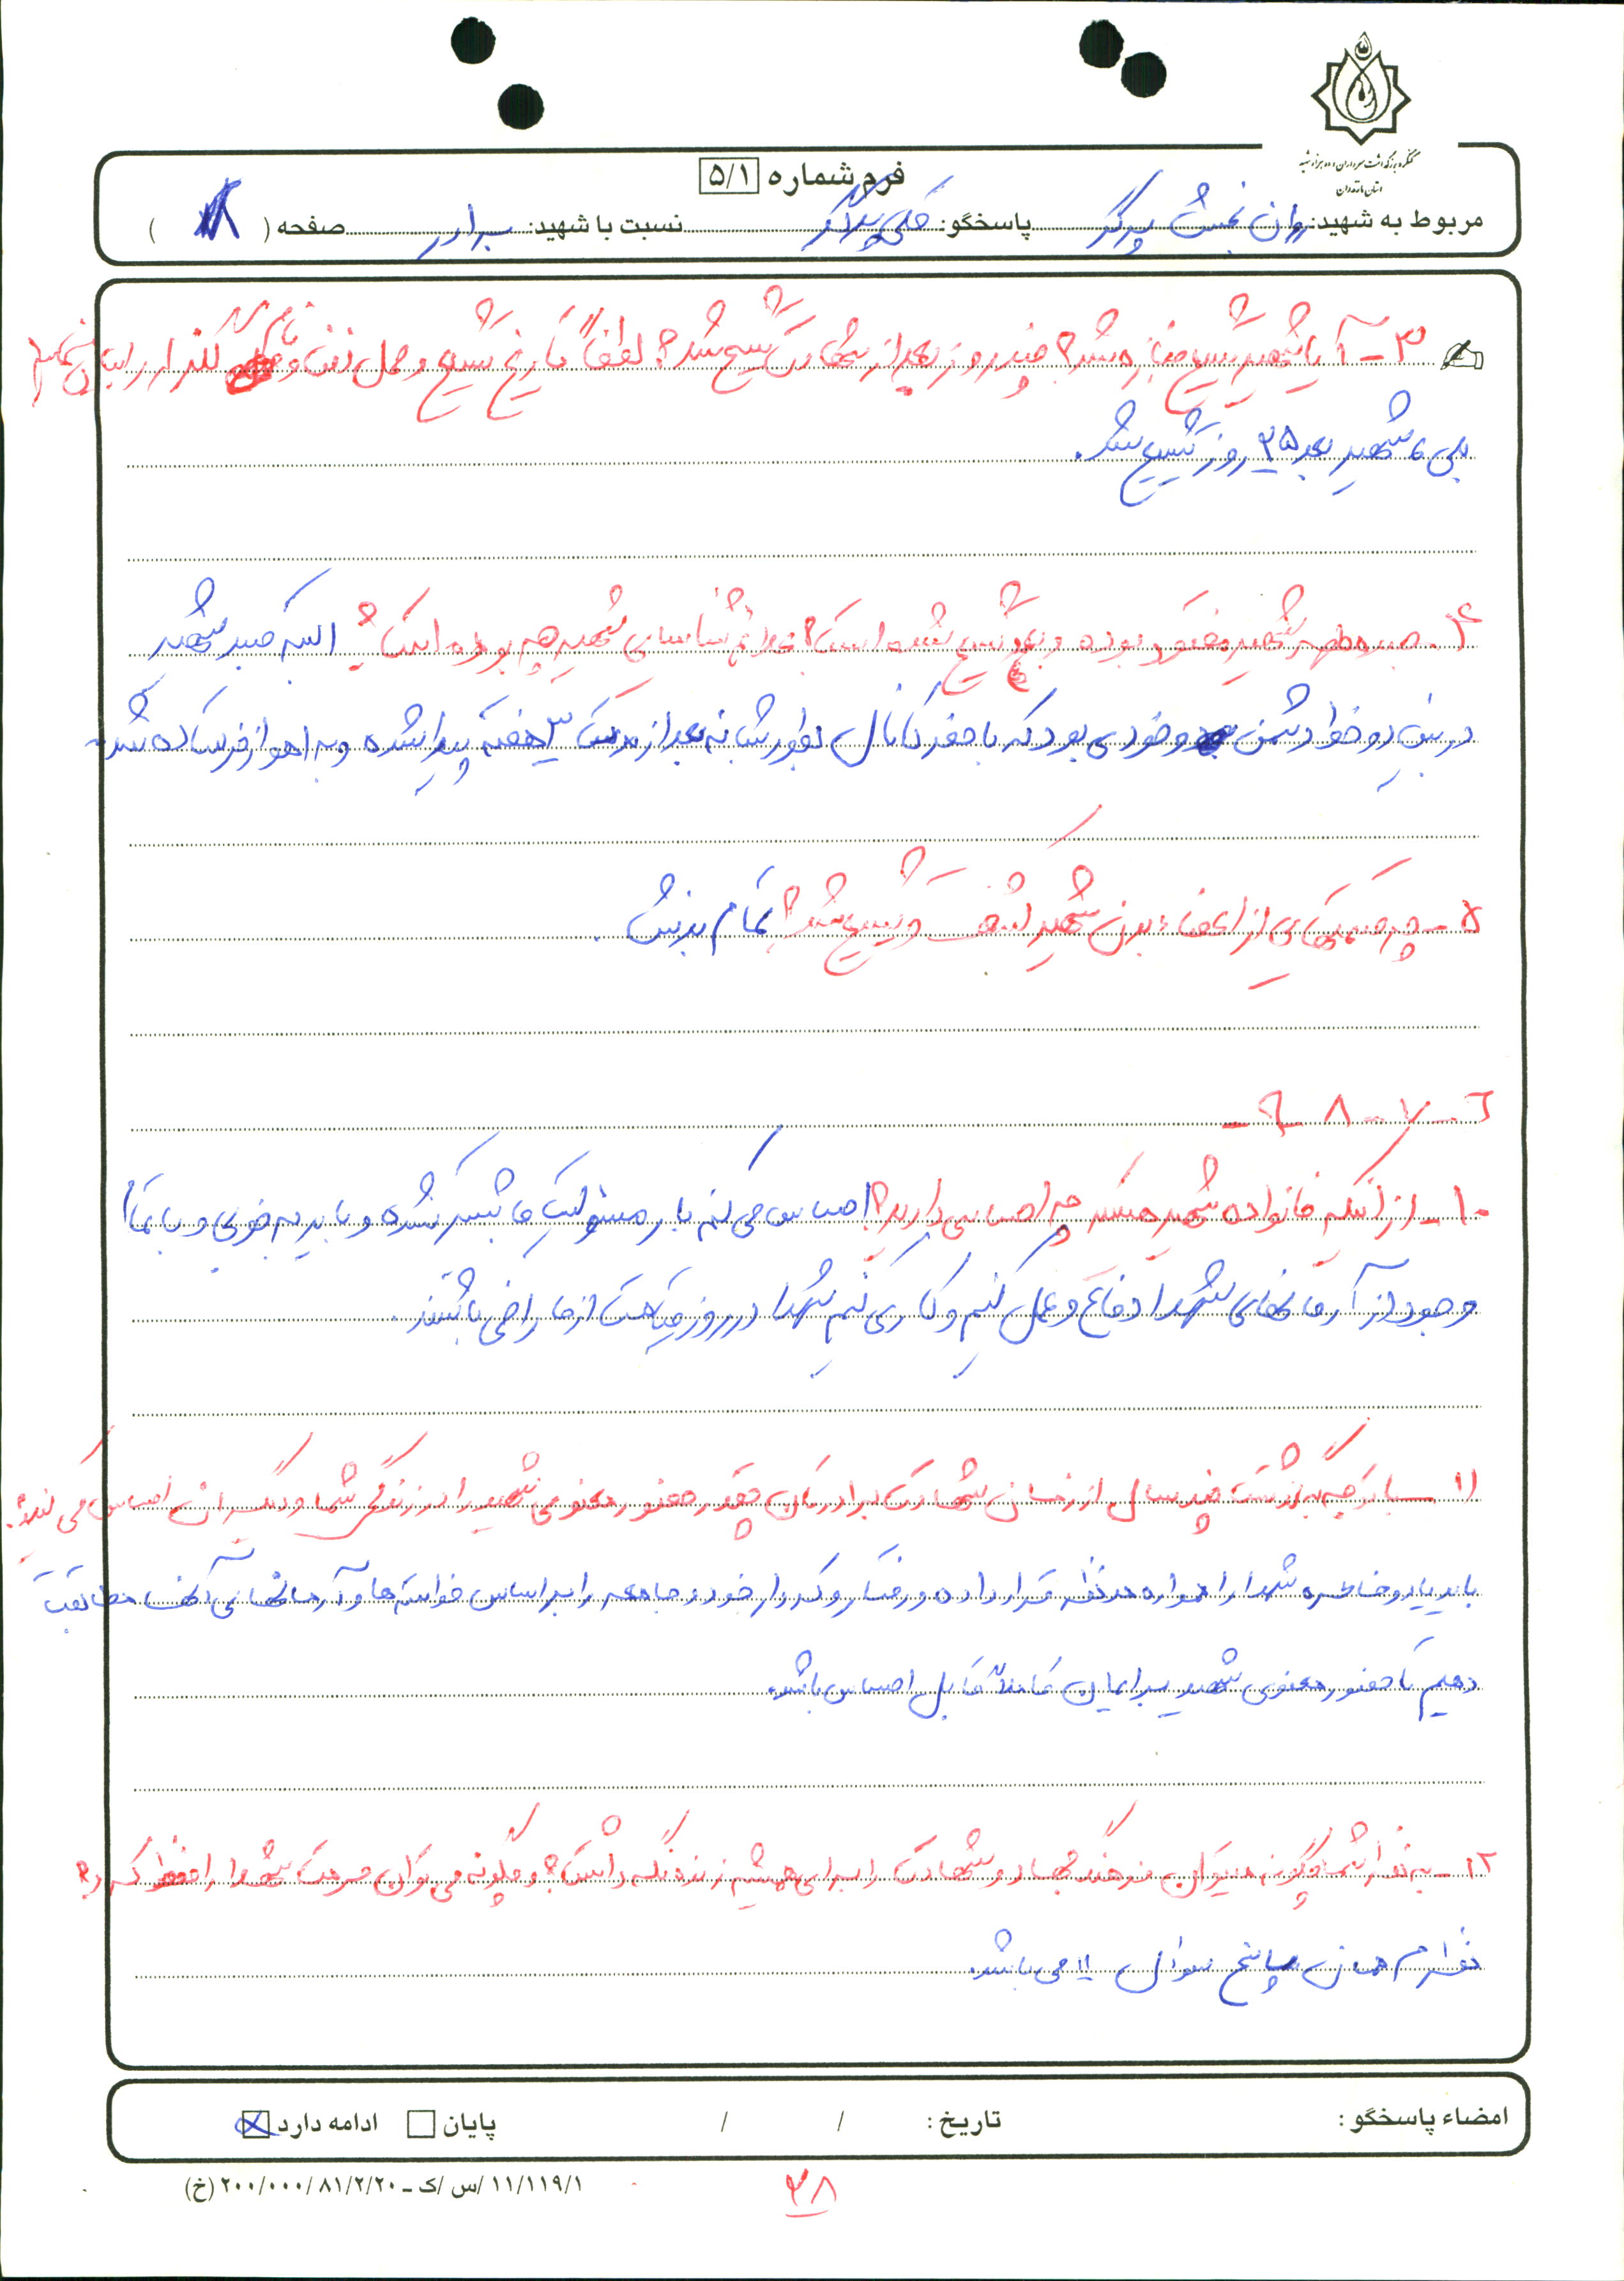 کنگره بزرگداشت سرداران و ده هزار شهید
استان مازندران
فرم شماره ۵/۱
مربوط به شهید: روان بخش پاسخگو: علی نسبت با شهید: برادر صفحه ( ۱۸ )
۳- آیا شهید تشییع جنازه شد؟ چند روز بعد از شهادت تشییع شد؟ لطفاً تاریخ تشییع و محل دفن و نام گلزار را بیان نمائید؟
بلی، شهید بعد ۲۵ روز تشییع شد.
۴- جسد مطهر شهید مفقود بوده و بعد تشییع شده است؟ نحوه شناسایی شهید چه بوده است؟ البته جسد شهید
در بین دو خط دشمن و خودی بود که با حفر کانال بطور شبانه بعد از مدت ۳ هفته پیدا شده و به اهواز فرستاده شد.
۵- چه قسمتهایی از اعضاء بدن شهید کشف و تشییع شد؟ تمام بدنش.
۶-۷-۸-۹-
۱۰- از اینکه خانواده شهید هستید چه احساسی دارید؟ احساس می کنم بار مسئولیت ما بیشتر شده و باید به خوبی و با تمام
وجود از آرمانهای شهدا دفاع و عمل کنیم و کاری کنیم شهدا در روز قیامت از ما راضی باشند.
۱۱- با توجه به گذشت چند سال از زمان شهادت برادرتان چقدر حضور معنوی شهید را در زندگی شما و دیگران احساس می کنید؟
باید یاد و خاطره شهدا را همواره مد نظر قرار داده و رفتار و کردار خود در جامعه را بر اساس خواسته ها و آرمانهای آنها مطابقت
دهیم تا حضور معنوی شهید برایمان کاملاً قابل احساس باشد.
۱۲- به نظر شما چگونه میتوان فرهنگ جهاد و شهادت را برای همیشه زنده نگه داشت؟ و چگونه می توان حرمت شهدا را حفظ کرد؟
نظرم همان پاسخ سوال ۱۱ می باشد.
امضاء پاسخگو : تاریخ : / / پایان ادامه دارد
۱۱/۱۱۹/۱ /س /ک - ۲۰۰/۰۰۰/۸۱/۲/۲۰ (خ)
۳۸